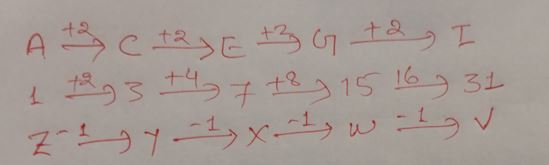 A +2→ C +2→ E +2→ G +2→ I
1 +2→ 3 +4→ 7 +8→ 15 16→ 31
Z -1→ Y -1→ X -1→ W -1→ V